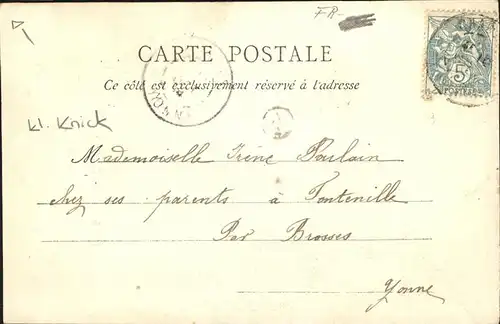 FR-
CARTE POSTALE
Ce côté est exclusivement réservé à l'adresse
5
POSTES
kl. Knick
Mademoiselle Irène Poulain
chez ses parents à Fontenille
Par Brosses
Yonne